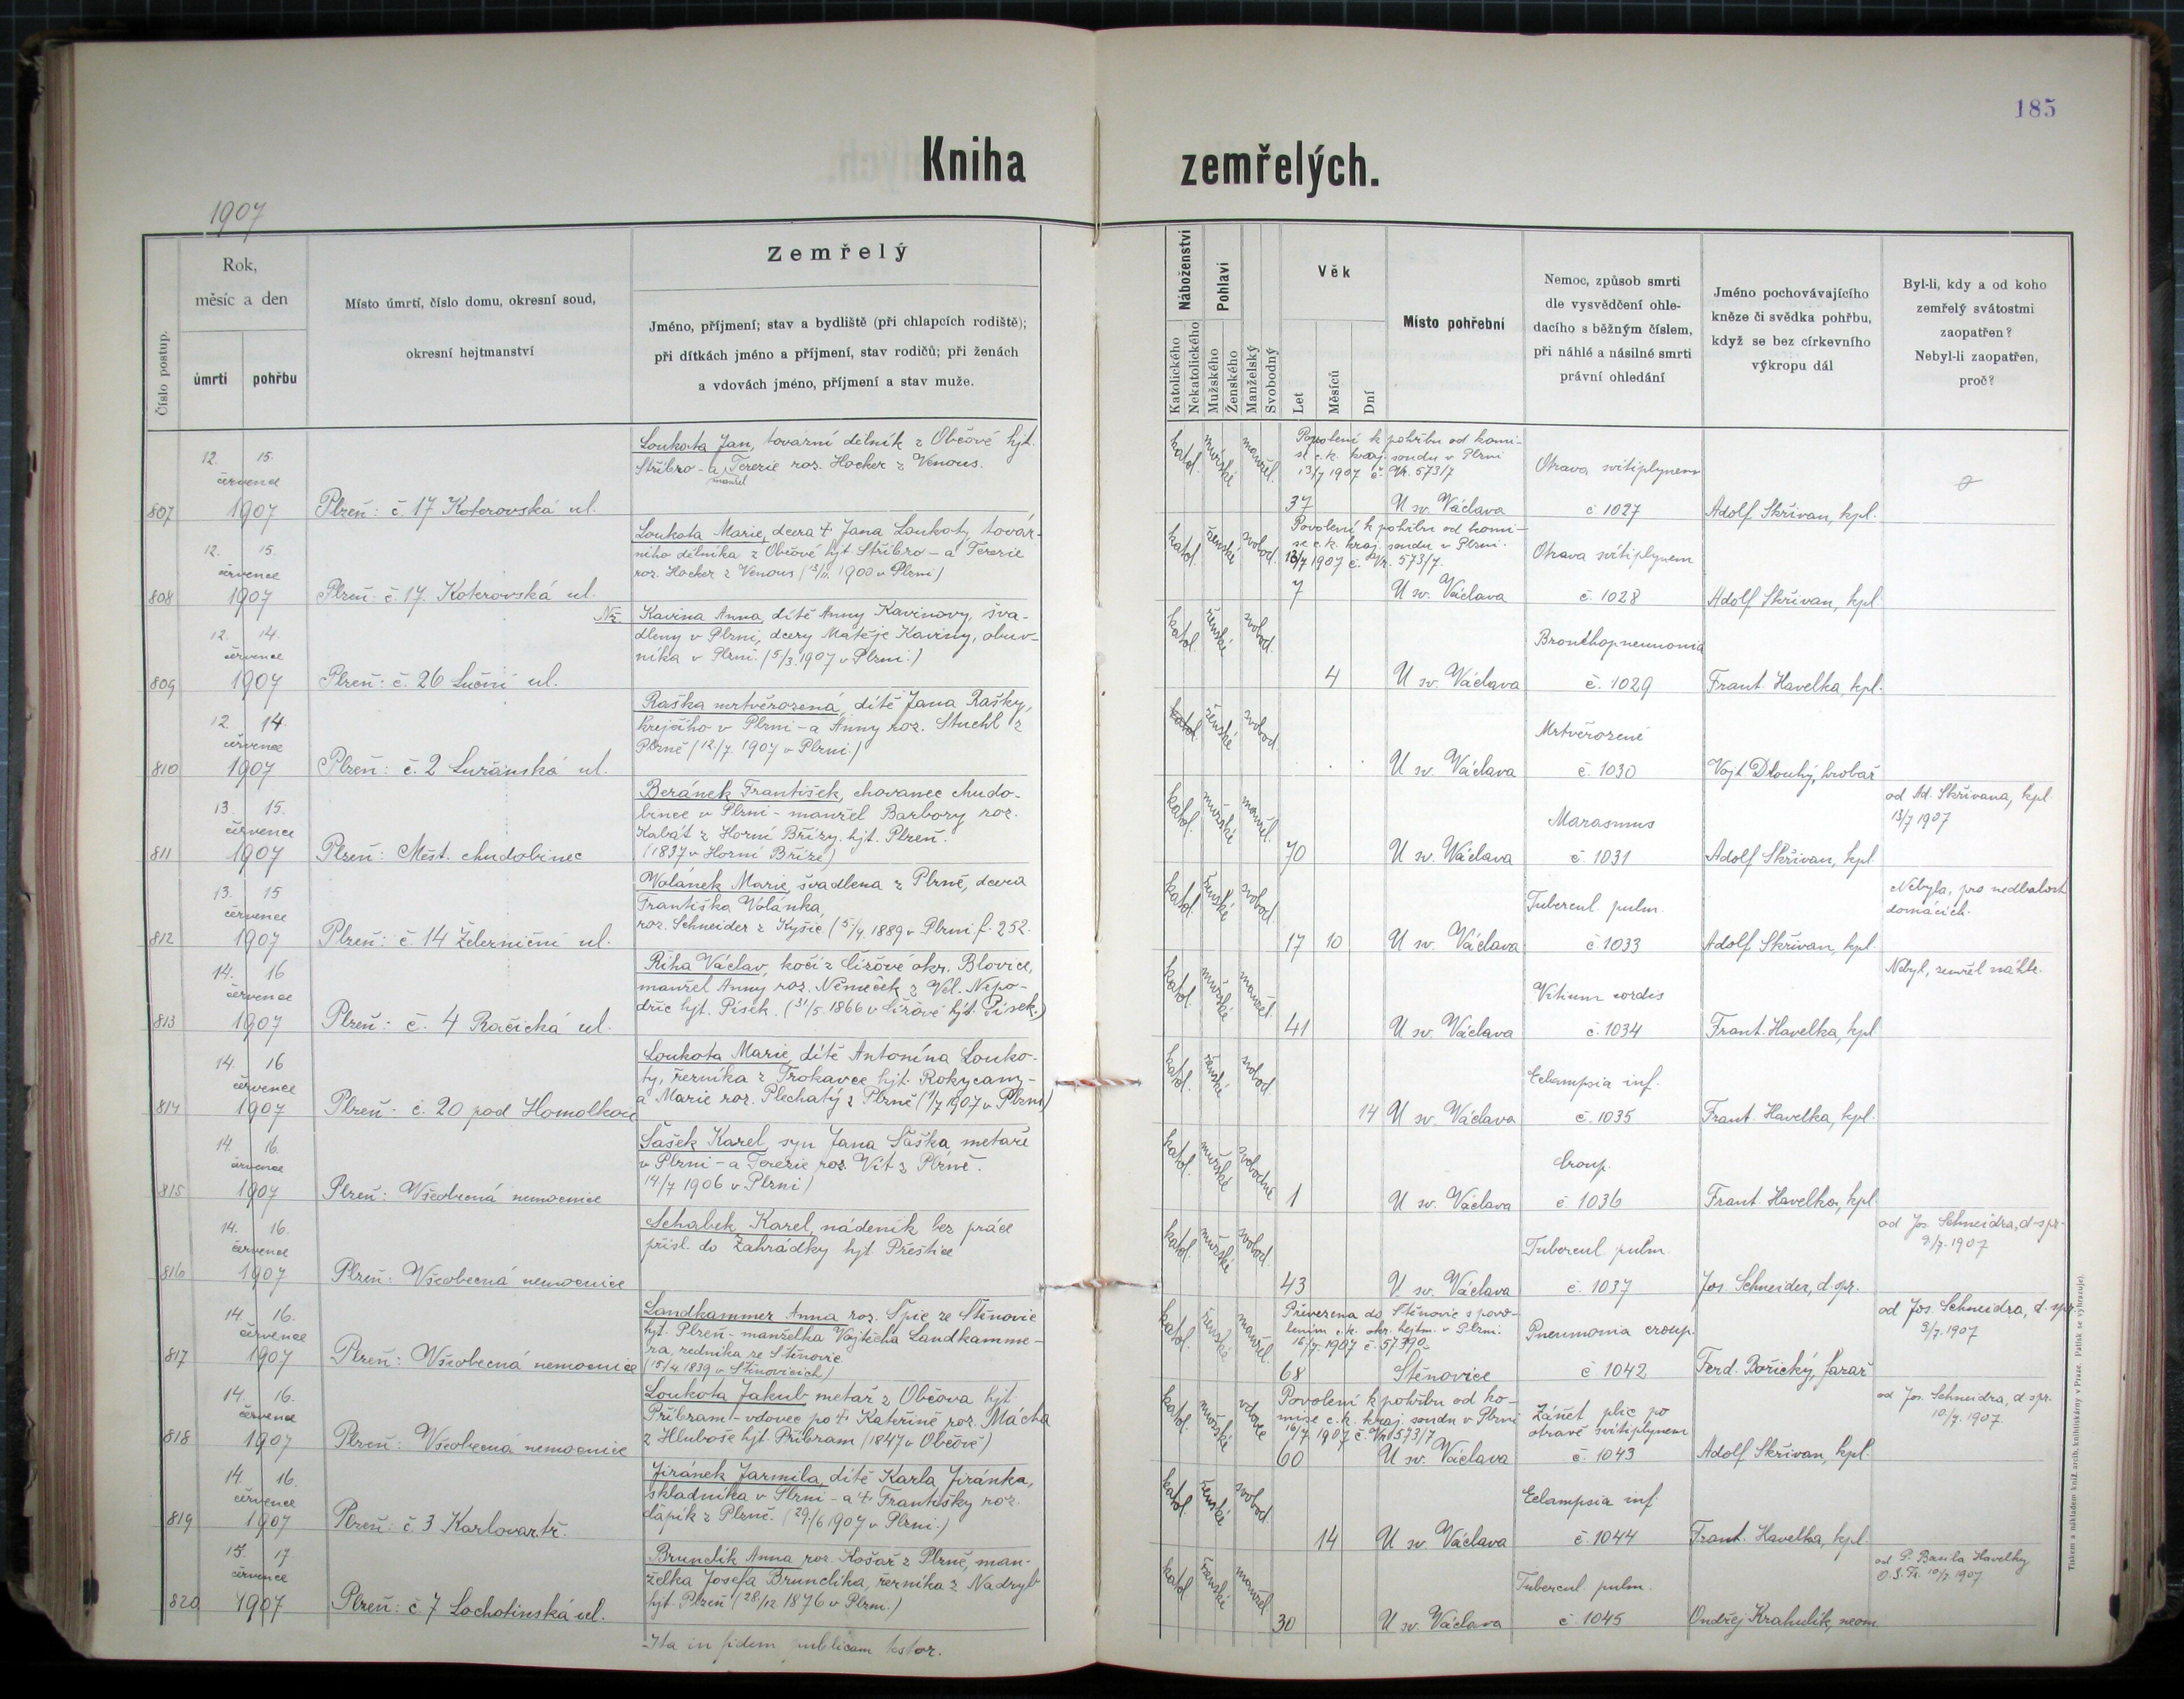 185
Kniha zemřelých.
1907
Číslo postup.
Rok,
měsíc a den
úmrtí
pohřbu
Místo úmrtí, číslo domu, okresní soud,
okresní hejtmanství
Zemřelý
Jméno, příjmení; stav a bydliště (při chlapcích rodiště);
při dítkách jméno a příjmení, stav rodičů; při ženách
a vdovách jméno, příjmení a stav muže.
Náboženství
Katolického
Nekatolického
Pohlaví
Mužského
Ženského
Manželský
Svobodný
Věk
Let
Měsíců
Dní
Místo pohřební
Nemoc, způsob smrti
dle vysvědčení ohle-
dacího s běžným číslem,
při náhlé a násilné smrti
právní ohledání
Jméno pochovávajícího
kněze či svědka pohřbu,
když se bez církevního
výkropu dál
Byl-li, kdy a od koho
zemřelý svátostmi
zaopatřen?
Nebyl-li zaopatřen,
proč?
807
12. 15.
července
1907
Plzeň: č. 17 Koterovská ul.
Loukota Jan, tovární dělník z Občové hjt.
Stříbro - a Terezie roz. Hocker z Venous.
manžel
katol. mužské manžel.
Povolení k pohřbu od komi-
se c.k. kraj. soudu v Plzni
13/7 1907 č. Vr. 573/7
37
U sv. Václava
Otrava svítiplynem
č 1027
Adolf Skřivan, kpl.
808
12. 15.
července
1907
Plzeň: č. 17 Koterovská ul.
Loukota Marie, dcera † Jana Loukoty, továr-
ního dělníka z Občové hjt. Stříbro - a Terezie
roz. Hocker z Venous (13/11. 1900 v Plzni)
katol. ženské svobod.
Povolení k pohřbu od komi-
se c.k. kraj. soudu v Plzni.
13/7 1907 č. Vr. 573/7.
7
U sv. Václava
Otrava svítiplynem
č. 1028
Adolf Skřivan, kpl.
809
12. 14.
července
1907
Plzeň: č. 26 Luční ul.
Nz.
Kavina Anna, dítě Anny Kavinovy, šva-
dleny v Plzni, dcery Matěje Kaviny, obuv-
níka v Plzni. (5/3. 1907 v Plzni.)
katol. ženské svobod.
4
U sv. Václava
Bronchopneumonia
č. 1029
Frant. Havelka, kpl.
810
12. 14.
července
1907
Plzeň: č. 2 Lužánská ul.
Raška mrtvěrozená, dítě Jana Rašky,
krejčího v Plzni - a Anny roz. Stuchl z
Plzně (12./7. 1907 v Plzni.)
katol. ženské svobod.
U sv. Václava
Mrtvěrozené
č. 1030
Vojt. Dlouhý, hrobař
811
13. 15.
července
1907
Plzeň: Měst. chudobinec
Beránek František, chovanec chudo-
bince v Plzni - manžel Barbory roz.
Kabát z Horní Břízy hjt. Plzeň.
(1837 v Horní Bříze)
katol. mužské manžel.
70
U sv. Václava
Marasmus
č. 1031
Adolf Skřivan, kpl.
od Ad. Skřivana, kpl.
13/7 1907
812
13. 15
července
1907
Plzeň: č. 14 Železniční ul.
Volánek Marie, švadlena z Plzně, dcera
Františka Volánka,
roz. Schneider z Kyšic (5/9. 1889 v Plzni f. 252.
katol. ženské svobod.
17 10
U sv. Václava
Tubercul. pulm.
č. 1033
Adolf Skřivan, kpl.
Nebyla, pro nedbalost
domácích.
813
14. 16
července
1907
Plzeň: č. 4 Račická ul.
Říha Václav, kočí z Čížové okr. Blovice,
manžel Anny roz. Němeček z Vel. Nepo-
dřic hjt. Písek. (31/5. 1866 v Čížové hjt. Písek.)
katol. mužské manžel.
41
U sv. Václava
Vitium cordis
č. 1034
Frant. Havelka, kpl
Nebyl, zemřel náhle.
814
14. 16
července
1907
Plzeň: č. 20 pod Homolkou
Loukota Marie, dítě Antonína Louko-
ty, řezníka z Trokavce hjt. Rokycany -
a Marie roz. Plechatý z Plzně (1/7 1907 v Plzni)
katol. ženské svobod.
14
U sv. Václava
Eclampsia inf.
č. 1035
Frant. Havelka, kpl.
815
14. 16.
července
1907
Plzeň: Všeobecná nemocnice
Šašek Karel, syn Jana Šaška, metaře
v Plzni - a Terezie roz. Vít z Plzně.
14/7 1906 v Plzni)
katol. mužské svobodné
1
U sv. Václava
Croup.
č 1036
Frant. Havelka, kpl.
816
14. 16.
července
1907
Plzeň: Všeobecná nemocnice
Schabek Karel, nádeník bez práce
přísl. do Zahrádky hjt. Přeštice
katol. mužské svobod.
43
U sv. Václava
Tubercul. pulm.
č. 1037
Jos. Schneider, d. spr.
od Jos. Schneidra, d. spr.
9/7. 1907
817
14. 16.
července
1907
Plzeň: Všeobecná nemocnice
Landkammer Anna roz. Špic ze Štěnovic
hjt. Plzeň - manželka Vojtěcha Landkamme-
ra, zedníka ze Štěnovic
(15/4. 1839 v Štěnovicích)
katol. ženské manžel.
Převezena do Štěnovic s povo-
lením c.k. okr. hejtm. v Plzni.
16/7. 1907 č. 57390.
68
Štěnovice
Pneumonia croup.
č 1042
Ferd. Bořický, farář
od Jos. Schneidra, d. spr.
9/7. 1907
818
14. 16.
července
1907
Plzeň: Všeobecná nemocnice
Loukota Jakub, metař z Občova hjt
Příbram - vdovec po † Kateřině roz. Mácha
z Hluboše hjt. Příbram (1847 v Občově)
katol. mužské vdovec
Povolení k pohřbu od ko-
mise c.k. kraj. soudu v Plzni
16/7 1907 č. Vr. 573/7
60
U sv. Václava
Zánět plic po
otravě svítiplynem
č. 1043
Adolf Skřivan, kpl.
od Jos. Schneidra, d. spr.
10/7. 1907.
819
14. 16.
července
1907
Plzeň: č. 3 Karlovar. tř.
Jiránek Jarmila, dítě Karla Jiránka,
skladníka v Plzni - a † Františky roz.
Čapík z Plzně. (29./6 1907 v Plzni.)
katol. ženské svobod.
14
U sv. Václava
Eclampsia inf
č. 1044
Frant. Havelka, kpl.
820
15. 17.
července
1907
Plzeň: č 7 Lochotínská ul.
Brunclík Anna roz. Košař z Plzně, man-
želka Josefa Brunclíka, řezníka z Nadryb
hjt. Plzeň (28./12 1876 v Plzni.)
katol. ženské manžel.
30
U sv. Václava
Tubercul. pulm.
č 1045
Ondřej Krahulík, neom.
od P. Basila Havelky
O.S.Fr. 10/7. 1907
Ita in fidem publicam testor.
Tiskem a nákladem kníž. arcib. knihtiskárny v Praze. Patisk se vyhrazuje.